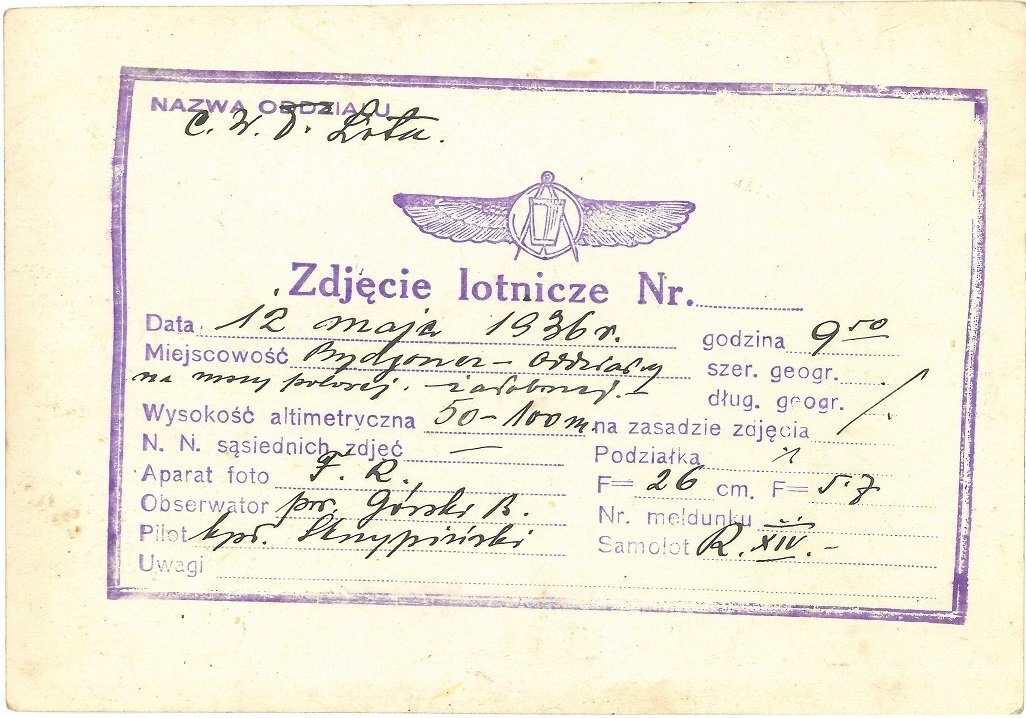 NAZWA ODDZIAŁU
C. W. T. Lotu.
Zdjęcie lotnicze Nr.
Data 12 maja 1936 r. godzina 9 50
Miejscowość oddziały szer. geogr.
na dług. geogr.
Wysokość altimetryczna 50-100m na zasadzie zdjęcia
N. N. sąsiednich zdjęć — Podziałka
Aparat foto F. R. F= 26 cm. F= 5.7
Obserwator por. Górski B. Nr. meldunku
Pilot kpr. Skrypiński Samolot R. XIV.-
Uwagi